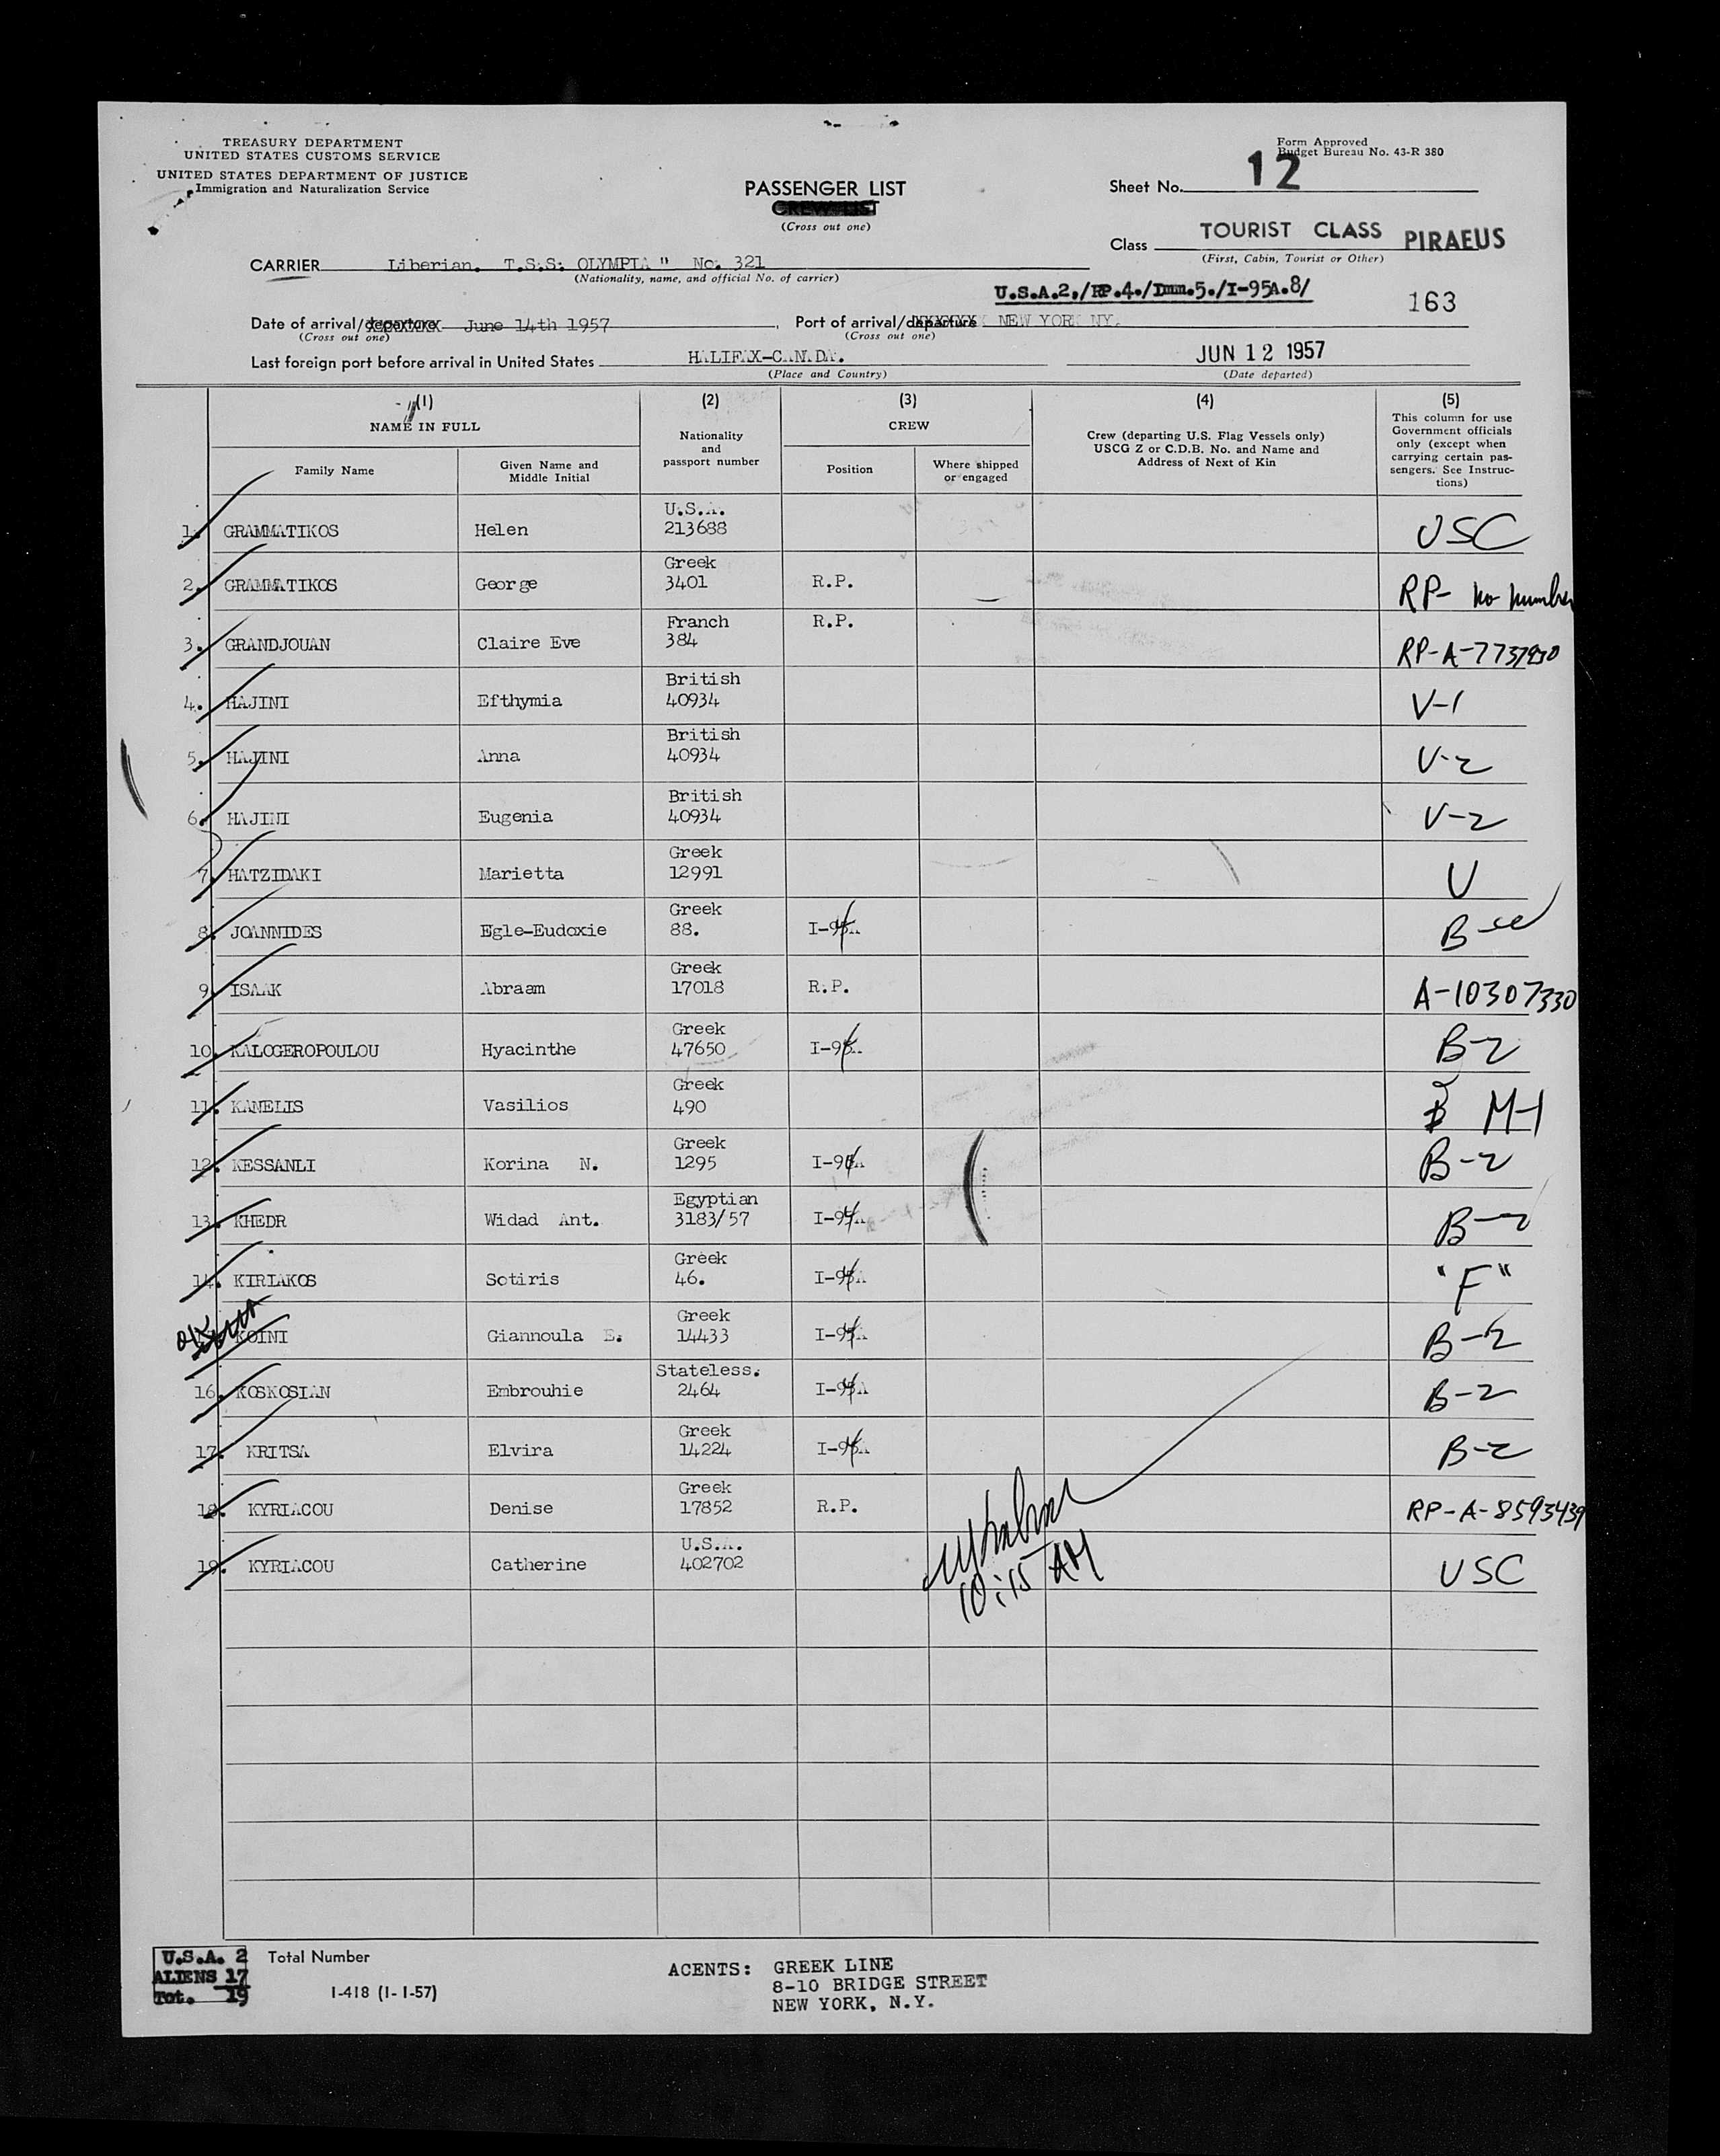 TREASURY DEPARTMENT
UNITED STATES CUSTOMS SERVICE
UNITED STATES DEPARTMENT OF JUSTICE
Immigration and Naturalization Service
Form Approved
Budget Bureau No. 43-R 380
PASSENGER LIST
CREW LIST
(Cross out one)
Sheet No. 12
Class TOURIST CLASS PIRAEUS
(First, Cabin, Tourist or Other)
CARRIER Liberian. T.S.S: OLYMPIA" No. 321
(Nationality, name, and official No. of carrier)
U.S.A.2,/RP.4./Imm.5./I-95A.8/
163
Date of arrival/departure June 14th 1957 Port of arrival/departure NEW YORK NY.
(Cross out one) (Cross out one)
Last foreign port before arrival in United States HALIFAX-CANADA. JUN 12 1957
(Place and Country) (Date departed)
(1) (2) (3) (4) (5)
NAME IN FULL
Family Name
Given Name and Middle Initial
Nationality and passport number
CREW
Position
Where shipped or engaged
Crew (departing U.S. Flag Vessels only)
USCG Z or C.D.B. No. and Name and
Address of Next of Kin
This column for use
Government officials
only (except when
carrying certain pas-
sengers. See Instruc-
tions)
1. GRAMMATIKOS Helen U.S.A. 213688 USC
2. GRAMMATIKOS George Greek 3401 R.P. RP- no number
3. GRANDJOUAN Claire Eve Franch 384 R.P. RP-A-7737930
4. HAJINI Efthymia British 40934 V-1
5. HAJINI Anna British 40934 V-2
6. HAJINI Eugenia British 40934 V-2
7. HATZIDAKI Marietta Greek 12991 U
8. JOANNIDES Egle-Eudoxie Greek 88. I-95A B
9. ISAAK Abraam Greek 17018 R.P. A-10307330
10. KALOGEROPOULOU Hyacinthe Greek 47650 I-95A B-2
11. KANELIS Vasilios Greek 490 M-1
12. KESSANLI Korina N. Greek 1295 I-95A B-2
13. KHEDR Widad Ant. Egyptian 3183/57 I-95A B-2
14. KIRIAKOS Sotiris Greek 46. I-95A "F"
KOINI Giannoula E. Greek 14433 I-95A B-2
16. KOSKOSIAN Embrouhie Stateless. 2464 I-95A B-2
17. KRITSA Elvira Greek 14224 I-95A B-2
18. KYRIACOU Denise Greek 17852 R.P. RP-A-8593439
19. KYRIACOU Catherine U.S.A. 402702 USC
10:15 AM
U.S.A. 2
ALIENS 17
Tot. 19
Total Number
I-418 (1-1-57)
AGENTS: GREEK LINE
8-10 BRIDGE STREET
NEW YORK, N.Y.